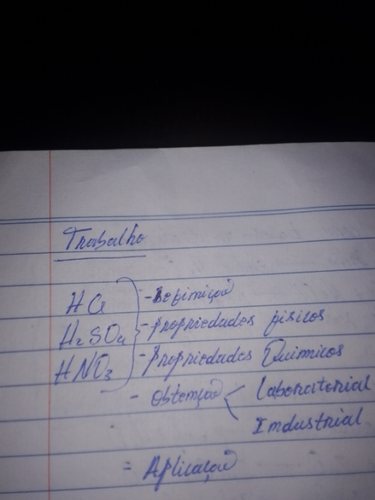 Trabalho
HCl - Definição
H₂SO₄ - Propriedades físicos
HNO₃ - Propriedades Químicos
- Obtenção < Laboratorial
Industrial
= Aplicação